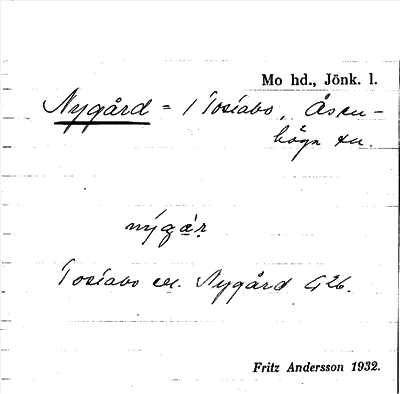 Mo hd., Jönk. l.
Nygård = 1 Tosíabo, Åsen-
höga sn.
nýgá̀r
Tosíabo el. Nygård G 26.
Fritz Andersson 1932.